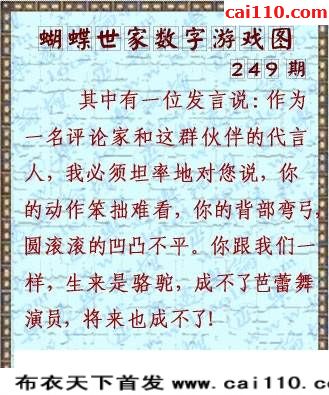 cai110.com
蝴蝶世家数字游戏图
249 期
其中有一位发言说:作为
一名评论家和这群伙伴的代言
人，我必须坦率地对您说，你
的动作笨拙难看，你的背部弯弓，
圆滚滚的凹凸不平。你跟我们一
样，生来是骆驼，成不了芭蕾舞
演员，将来也成不了!
布衣天下首发 www.cai110.c